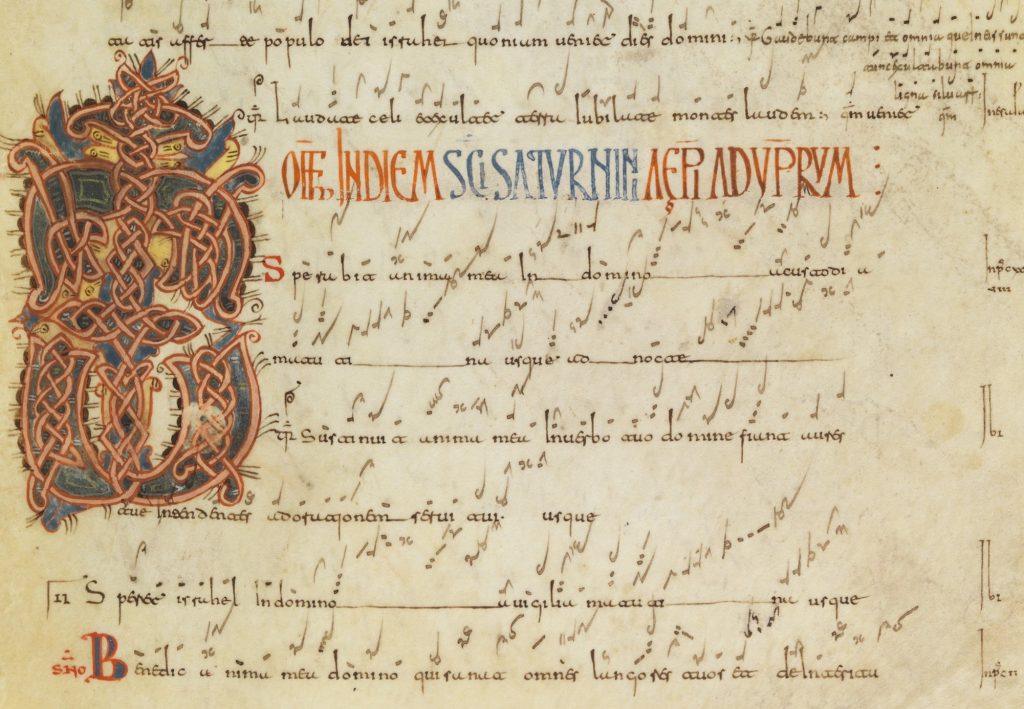 de populo dei israhel quoniam ueniet dies domini : Gaudebunt campi et omnia que in eis sunt
omnia
ligna siluar
Laudate celi et exultet terra Iubilate montes laudem : qm ueniet qm
OFF INDIEM SCI SATURNINI AEPI AD VPRVM :
Sperabit anima mea In domino a custodia
matuti na usque ad nocte
Sustinuit anima mea In uerbo tuo domine fiant aures
tue Intendentes ad orationem serui tui. usque
II Speret israhel In domino a uigilia matuti na usque
SNO Benedic anima mea domino qui sanat omnes langores tuos et de Interitu